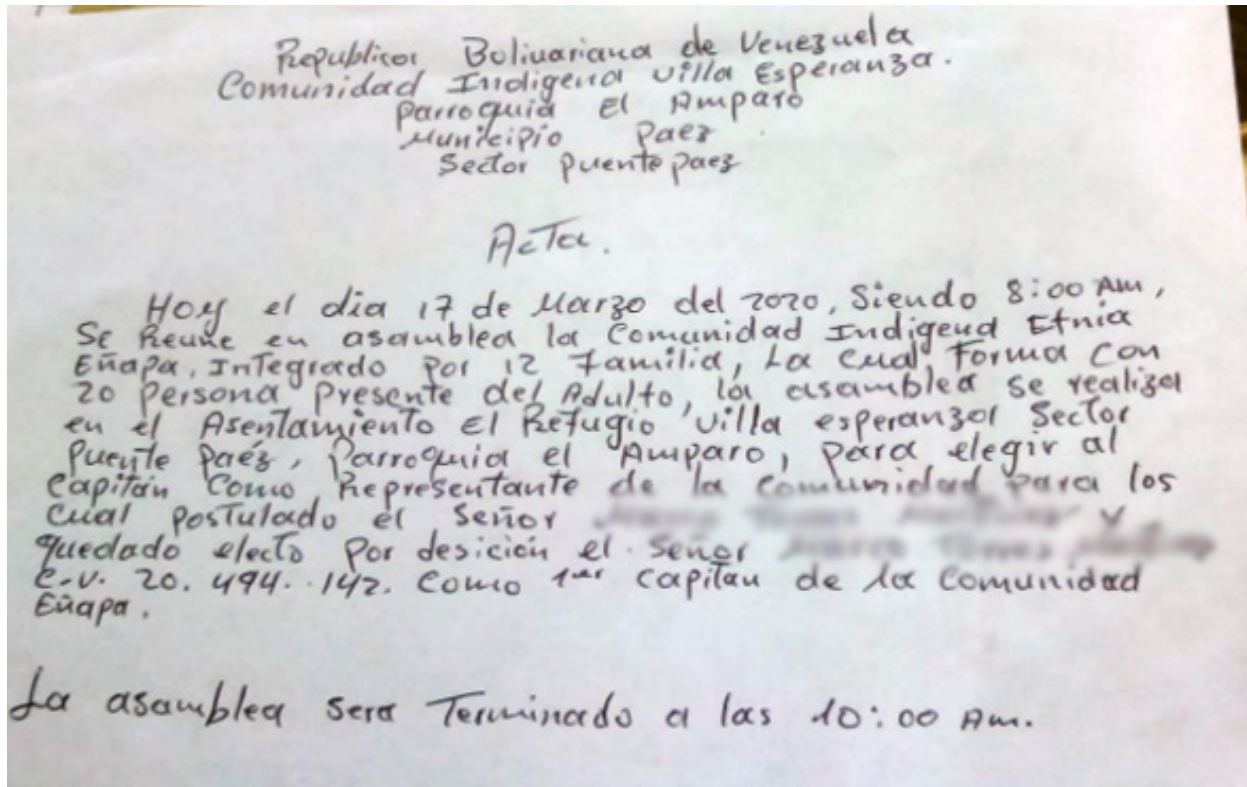 Republica Bolivariana de Venezuela
Comunidad Indigena villa Esperanza.
Parroquia El Amparo
Municipio Paez
Sector puente paez
Acta.
Hoy el dia 17 de Marzo del 2020, Siendo 8:00 Am,
Se Reune en asamblea la Comunidad Indigena Etnia
Eñapa, Integrado Por 12 Familia, La cual Forma Con
20 Persona Presente del Adulto, la asamblea se realiza
en el Asentamiento El Refugio villa esperanza Sector
Puente Paéz, Parroquia el Amparo, Para elegir al
Capitán Como Representante de la Comunidad Para los
Cual Postulado el Señor y
quedado electo Por desición el Señor
C.V. 20.494.142. Como 1er Capitan de la Comunidad
Eñapa.
La asamblea sera Terminado a las 10:00 Am.